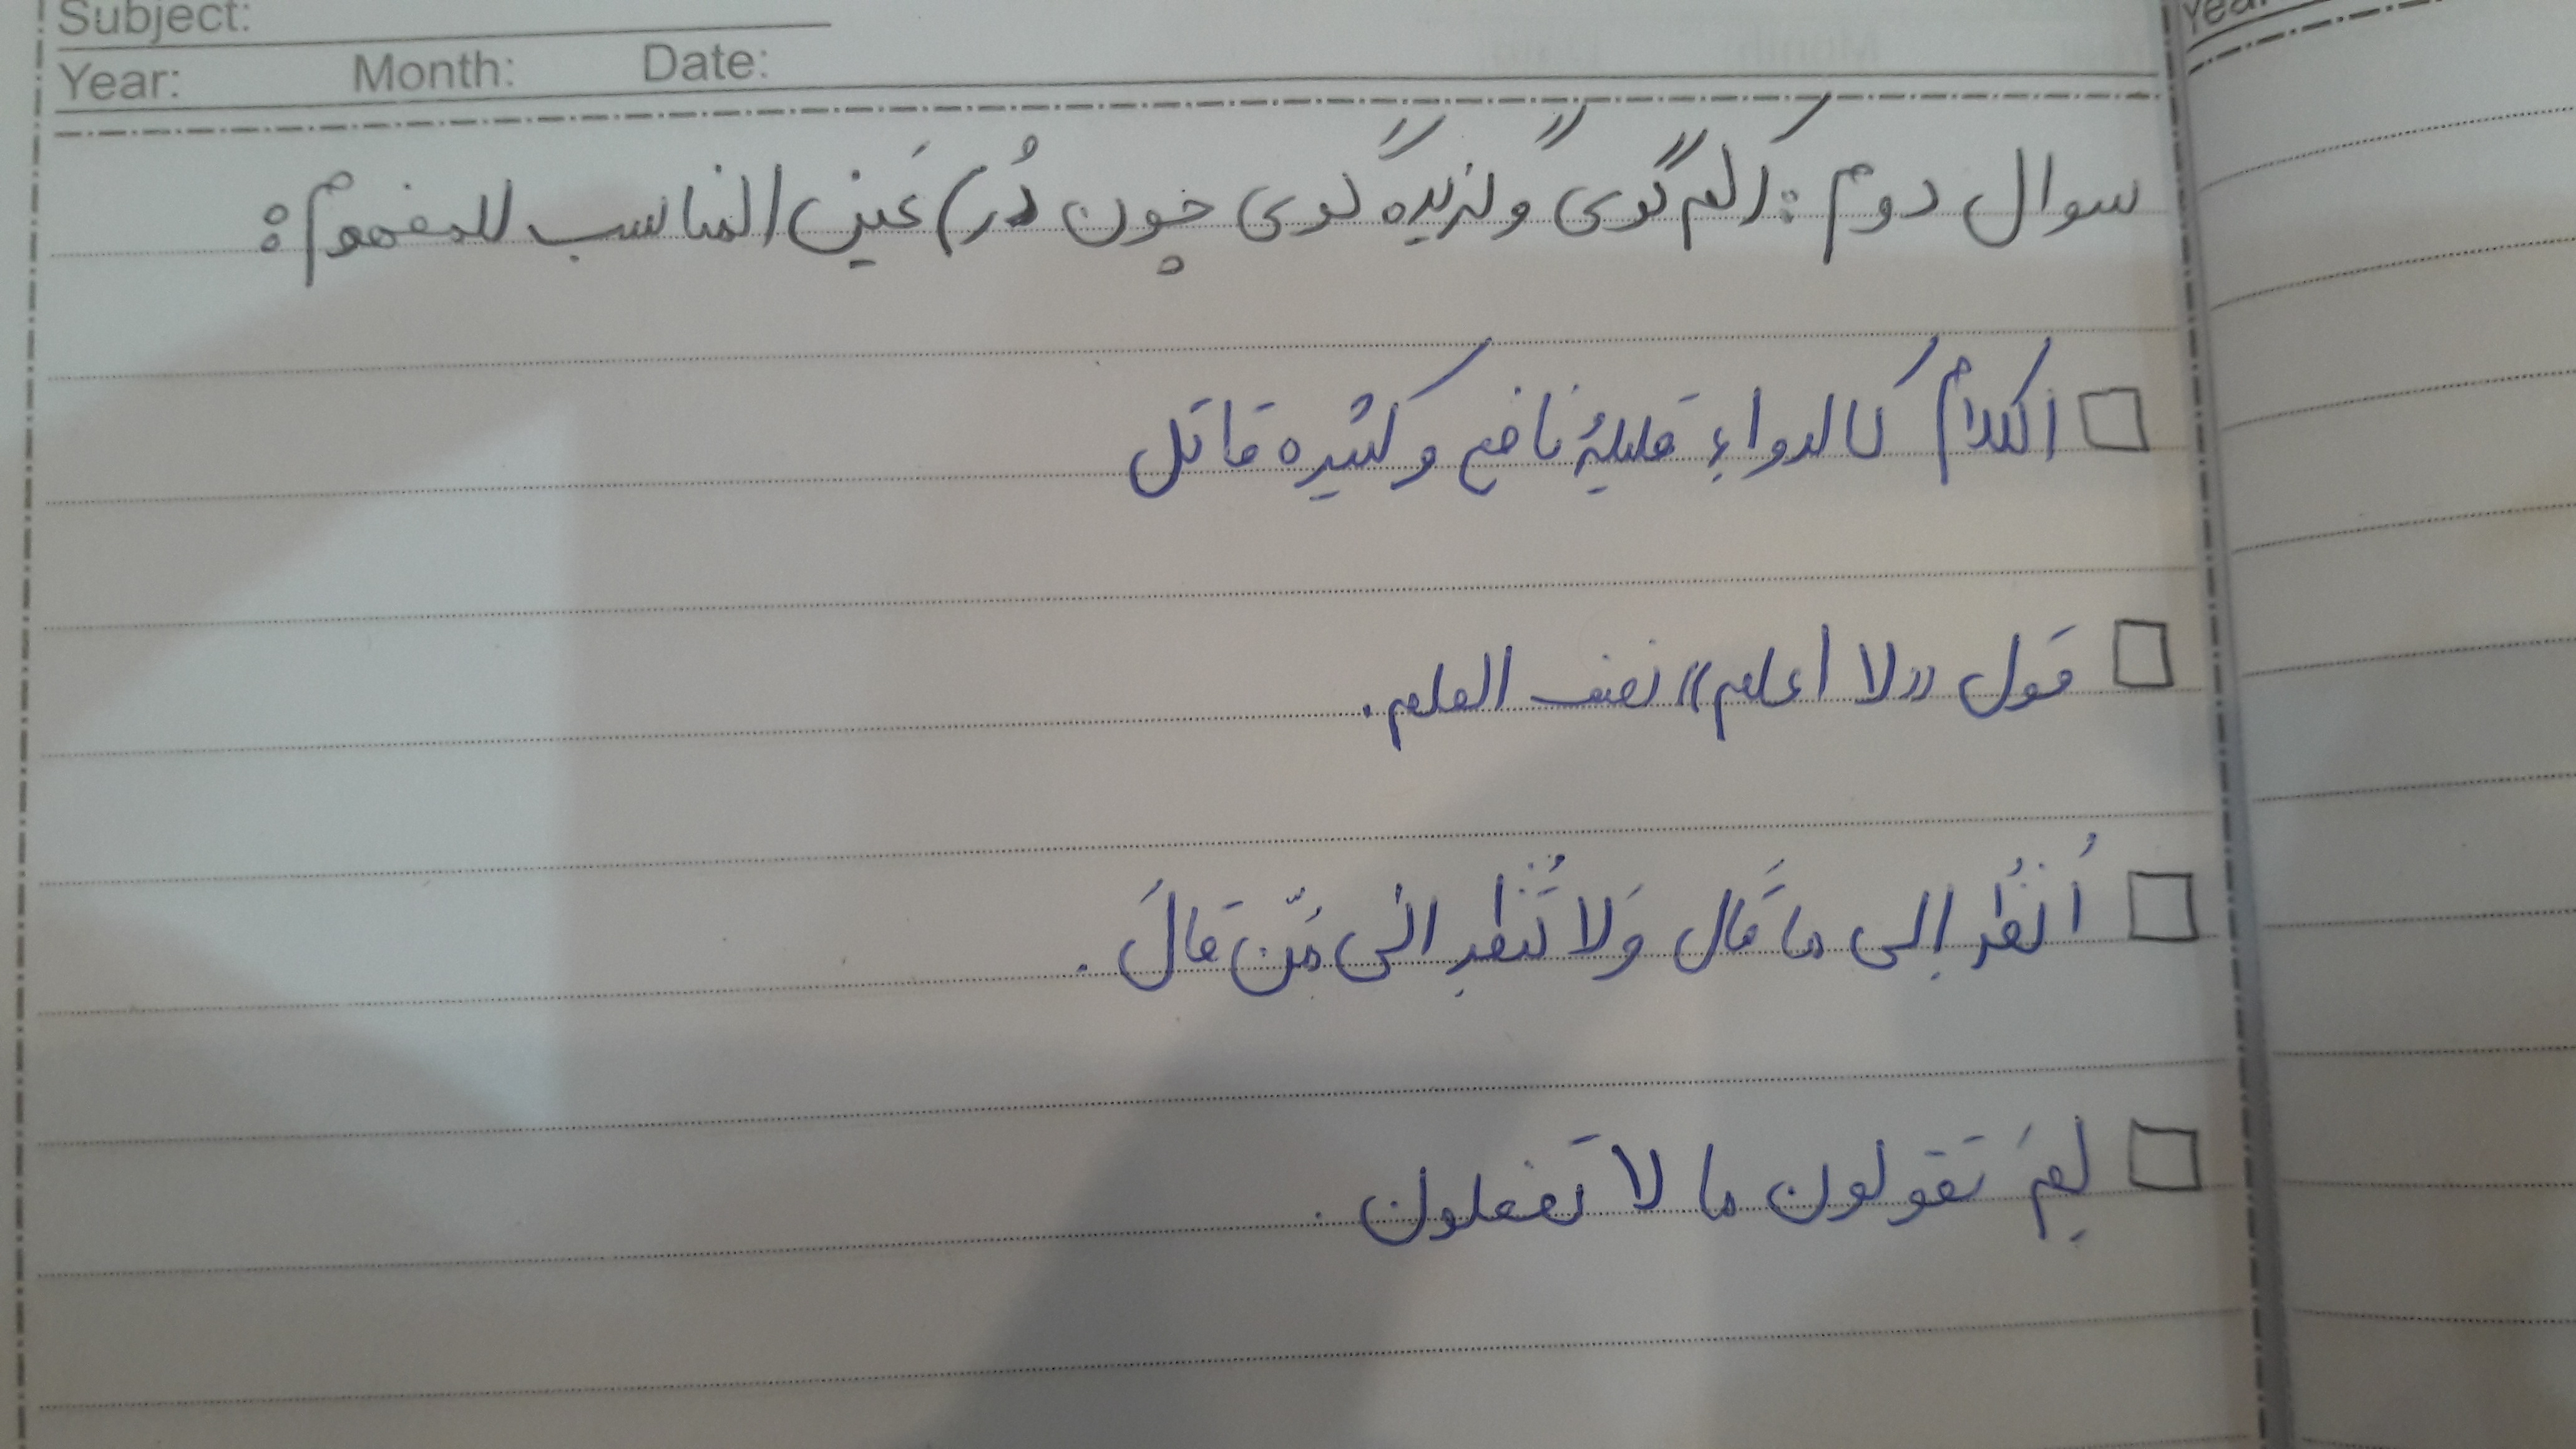 Subject:
Year: Month: Date:
سوال دوم: (کم گوی و گزیده گوی چون دُر) عَین المناسب للمفهوم:
الکلامُ کالدواءِ قلیلهُ نافع و کثیره قاتل
قول «لا اعلم» نصف العلم.
اُنظُر إلی ما قَال وَلا تَنظُر الی مَن قالَ.
لِمَ تقولون ما لا تفعلون.